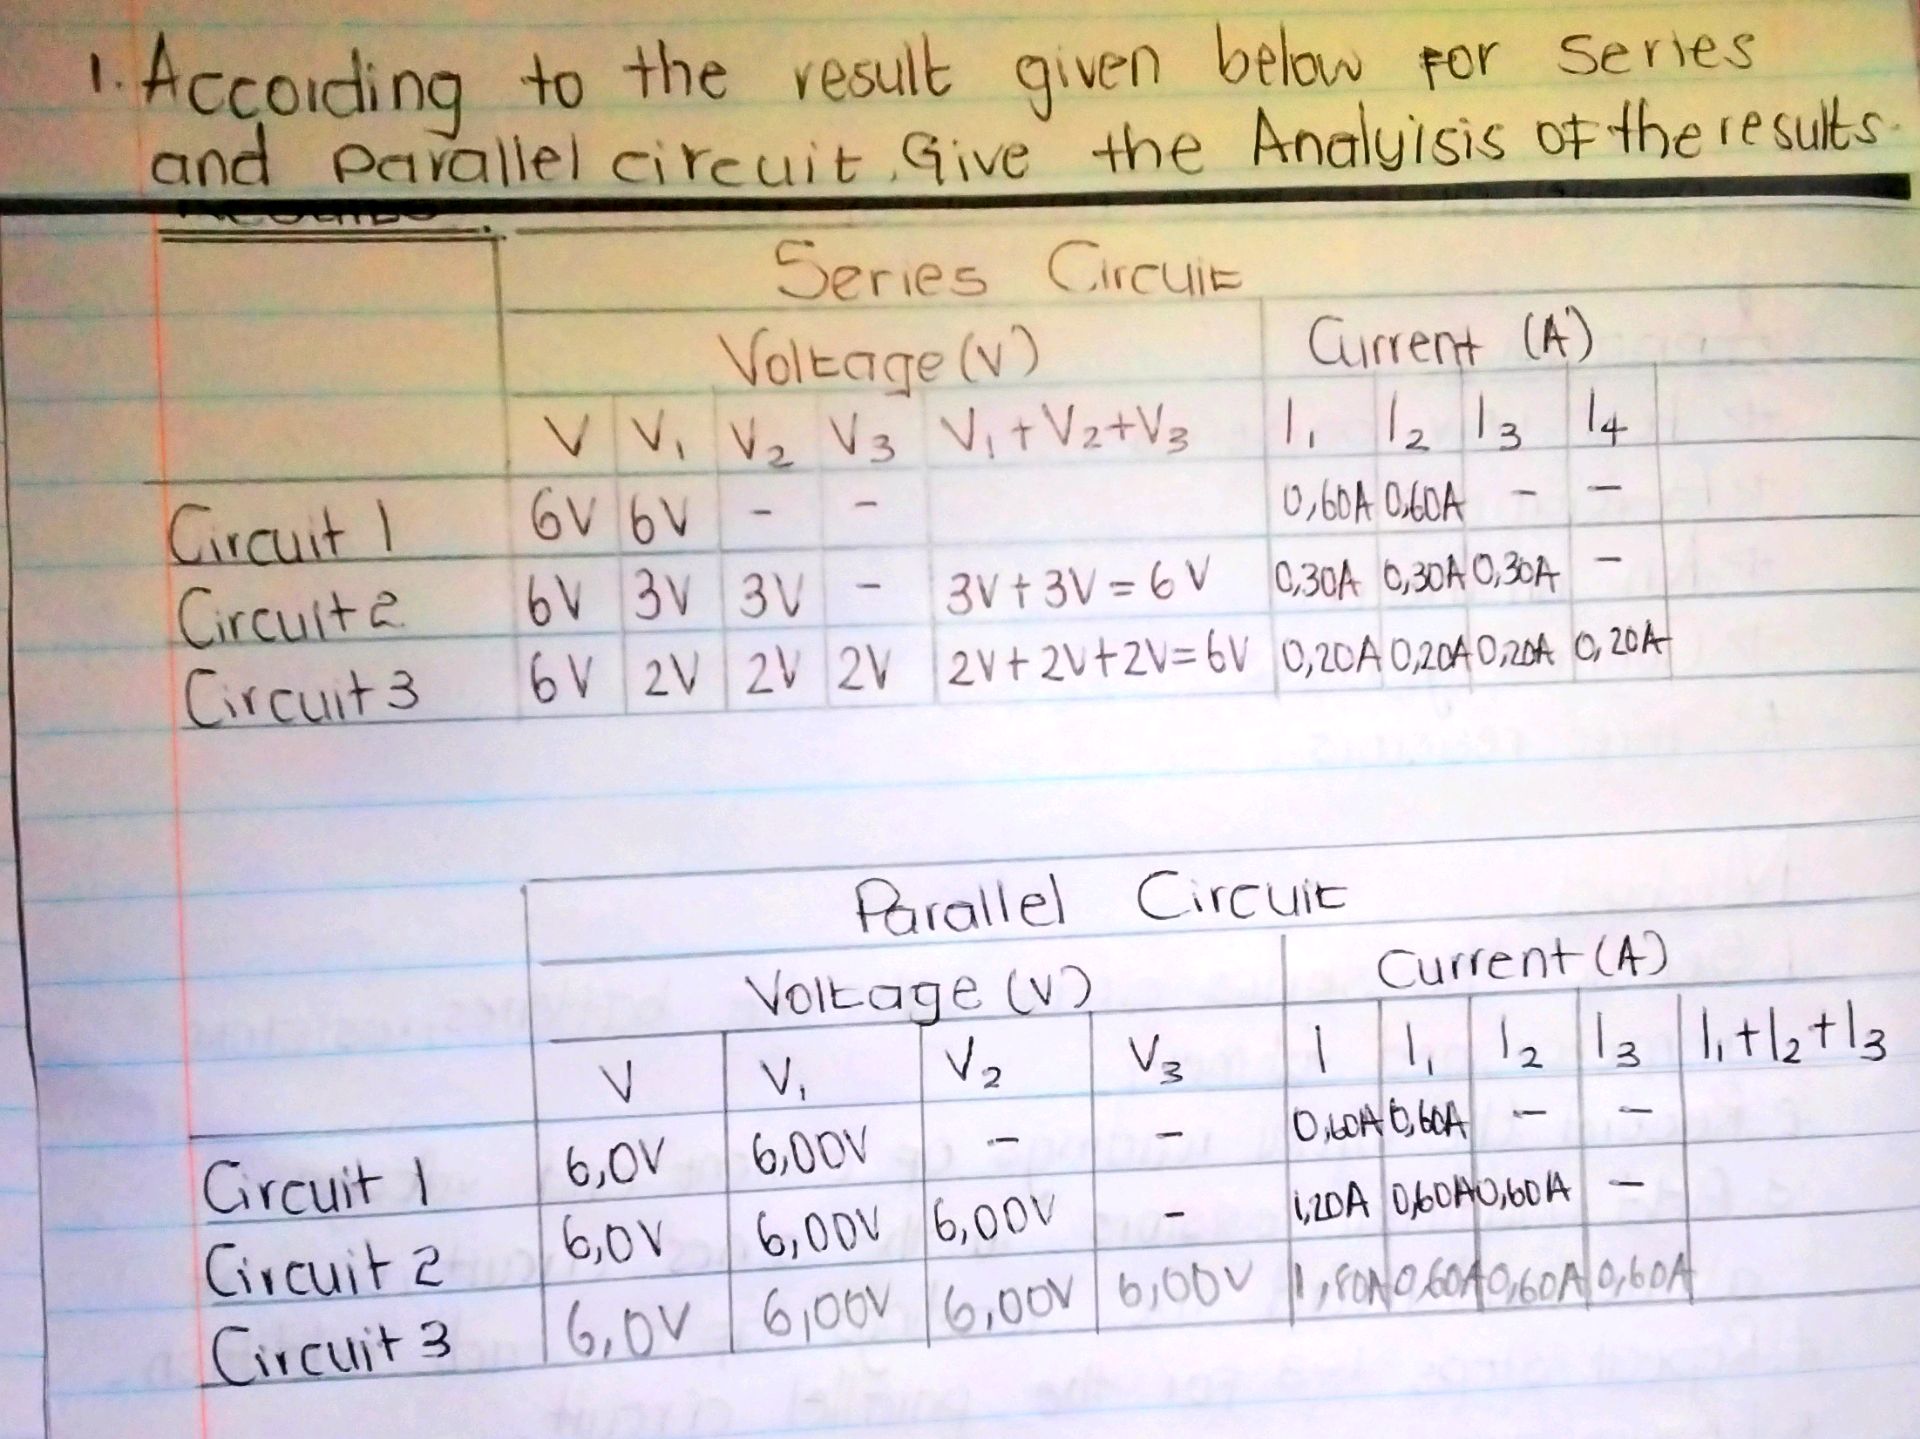 1. According to the result given below For Series
and Parallel circuit. Give the Analyisis of the results.
Series Circuit
Voltage (V) Current (A)
V V₁ V₂ V₃ V₁ + V₂+V₃ I₁ I₂ I₃ I₄
Circuit 1 6V 6V - - 0,60A 0,60A - -
Circuit 2 6V 3V 3V - 3V + 3V = 6V 0,30A 0,30A 0,30A -
Circuit 3 6V 2V 2V 2V 2V + 2V + 2V = 6V 0,20A 0,20A 0,20A 0,20A
Parallel Circuit
Voltage (V) Current (A)
V V₁ V₂ V₃ I I₁ I₂ I₃ I₁+I₂+I₃
Circuit 1 6,0V 6,00V - - 0,60A 0,60A - -
Circuit 2 6,0V 6,00V 6,00V - 1,20A 0,60A 0,60A -
Circuit 3 6,0V 6,00V 6,00V 6,00V 1,80A 0,60A 0,60A 0,60A